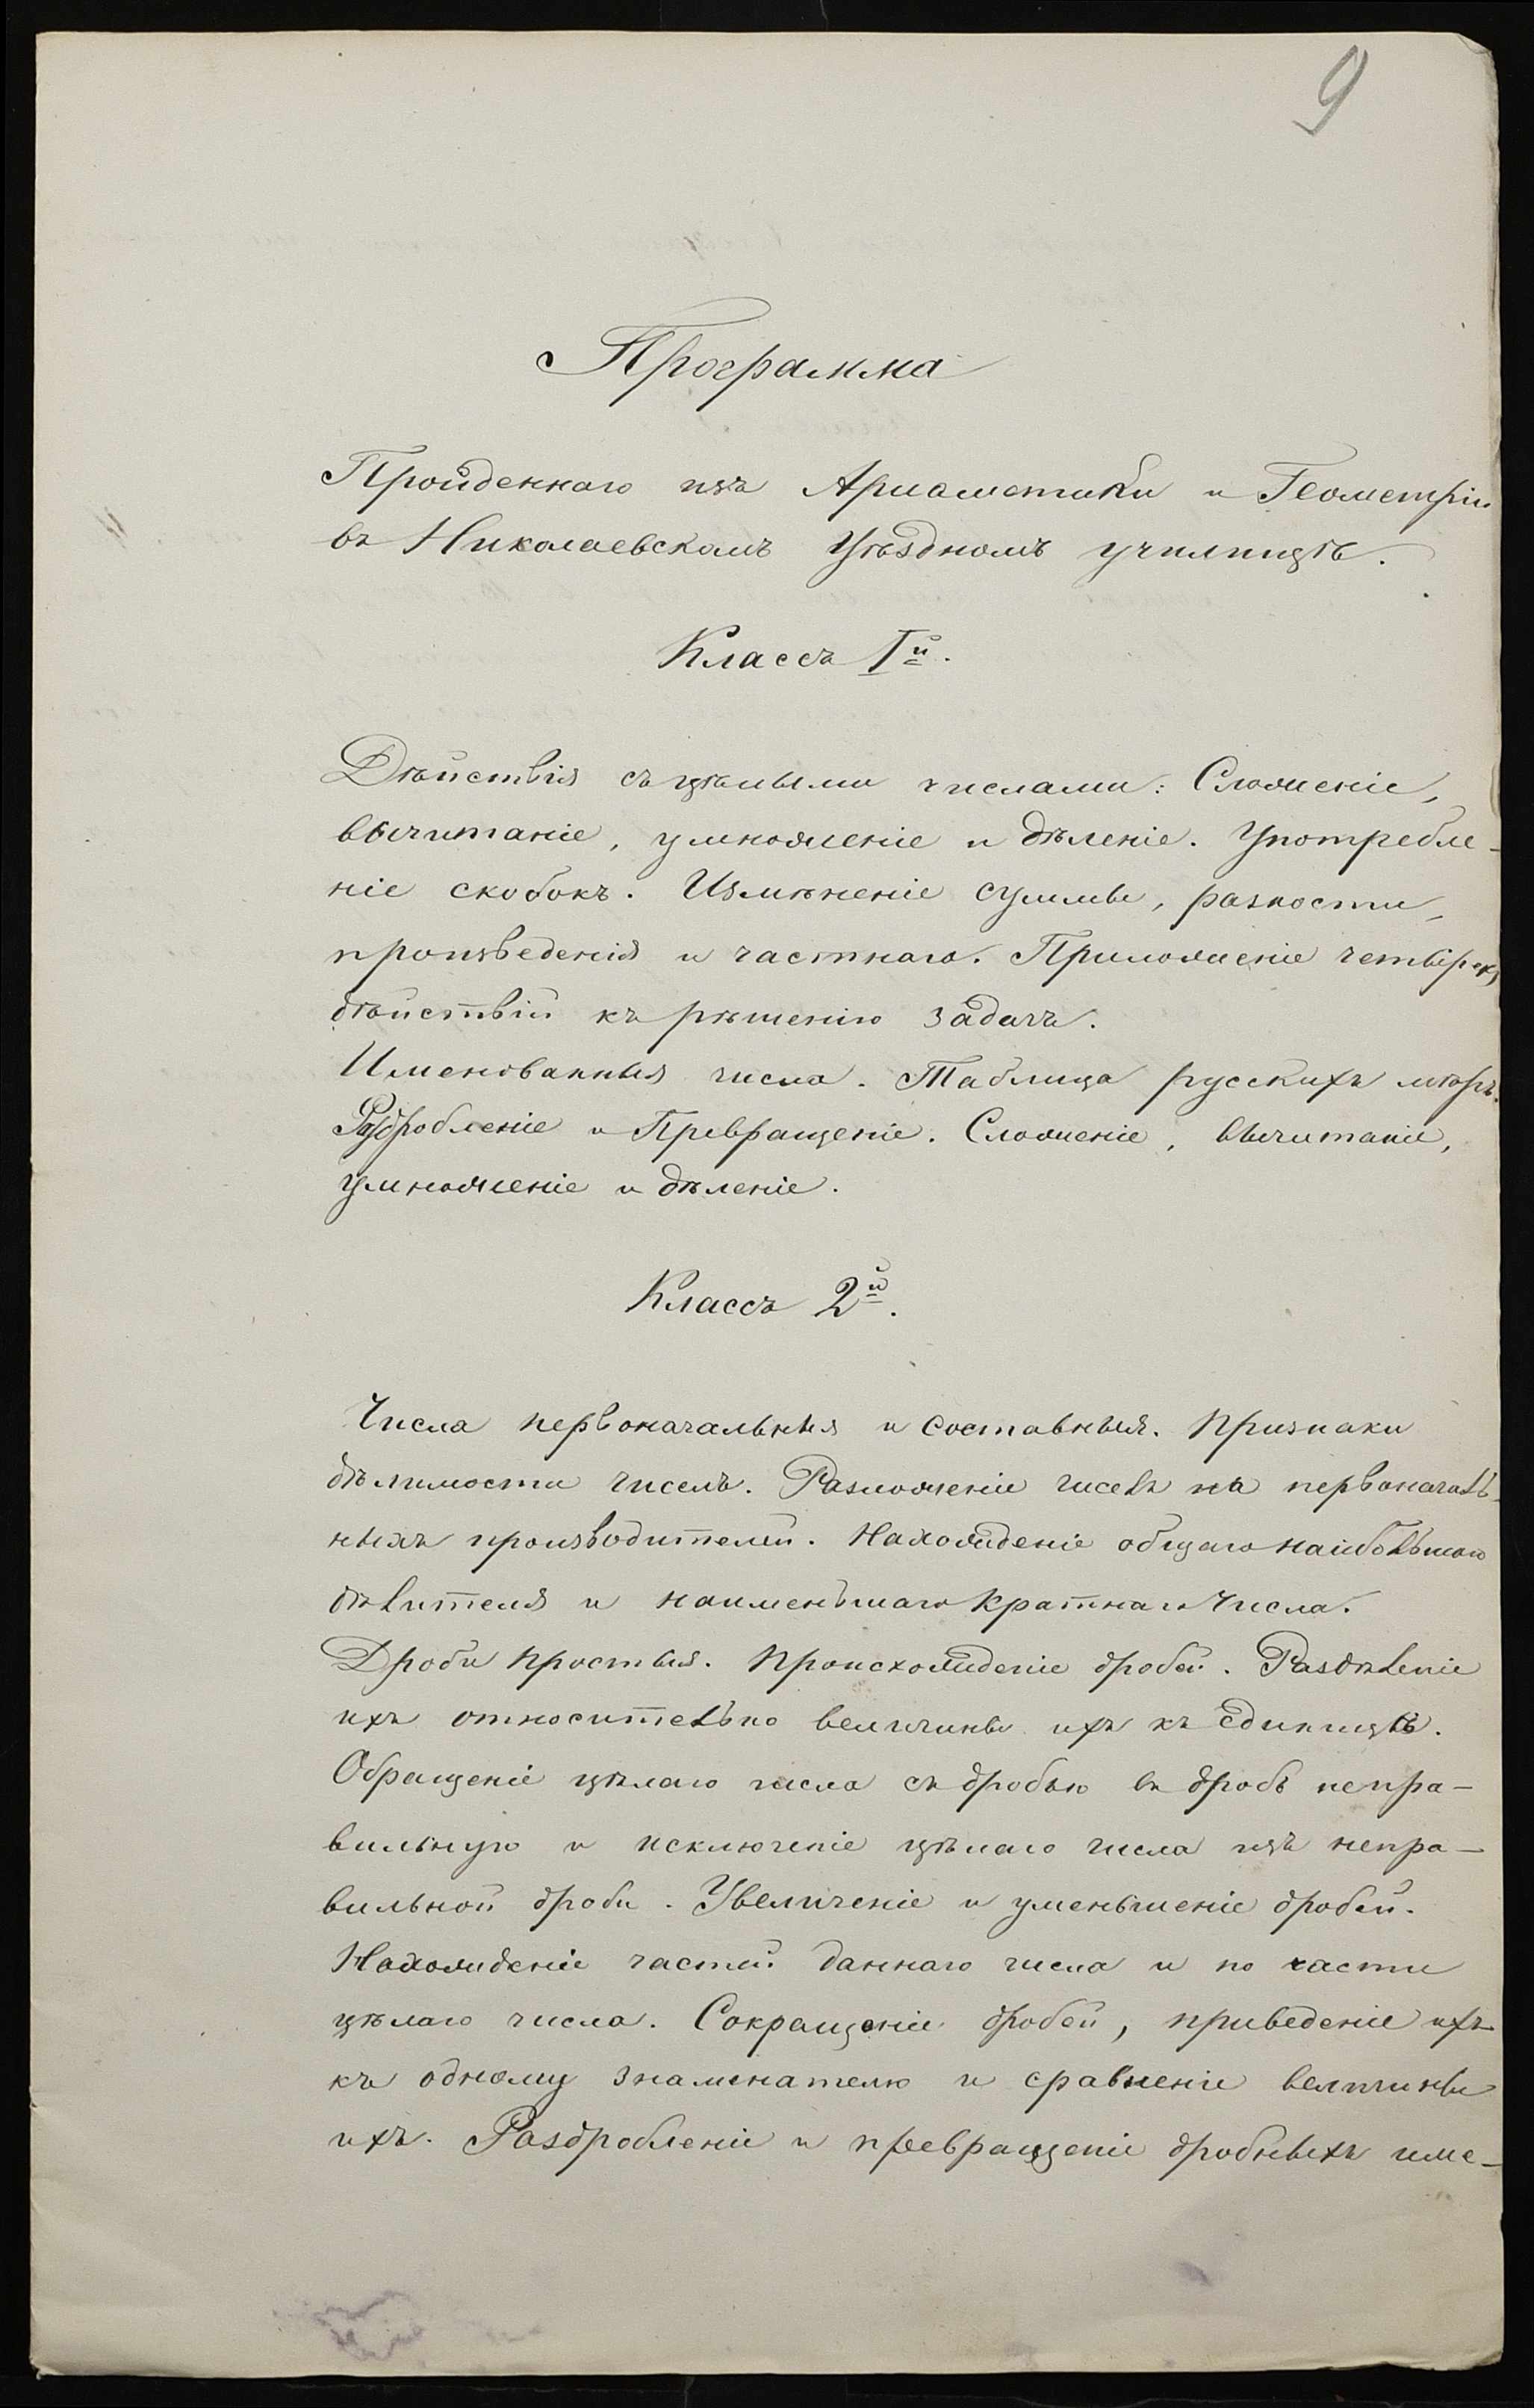 9
Программа
Пройденнаго изъ Ариѳметики и Геометріи
въ Николаевскомъ Уѣздномъ училищѣ.
Классъ Iй.
Дѣйствія съ цѣлыми числами: Сложеніе,
вычитаніе, умноженіе и дѣленіе. Употребле-
ніе скобокъ. Измѣненіе суммы, разности,
произведенія и частнаго. Приложеніе четырехъ
дѣйствій къ рѣшенію задачъ.
Именованныя числа. Таблица русскихъ мѣръ.
Раздробленіе и Превращеніе. Сложеніе, вычитаніе,
умноженіе и дѣленіе.
Классъ 2й.
Числа первоначальныя и составныя. Признаки
дѣлимости чиселъ. Разложеніе чиселъ на первоначаль-
ныхъ производителей. Нахожденіе общаго наибольшаго
дѣлителя и наименьшаго кратнаго числа.
Дроби простыя. Происхожденіе дробей. Раздѣленіе
ихъ относительно величины ихъ къ единицѣ.
Обращеніе цѣлаго числа съ дробью въ дробь непра-
вильную и исключеніе цѣлаго числа изъ непра-
вильной дроби. Увеличеніе и уменьшеніе дробей.
Нахожденіе частей даннаго числа и по части
цѣлаго числа. Сокращеніе дробей, приведеніе ихъ
къ одному знаменателю и сравненіе величины
ихъ. Раздробленіе и превращеніе дробныхъ име-